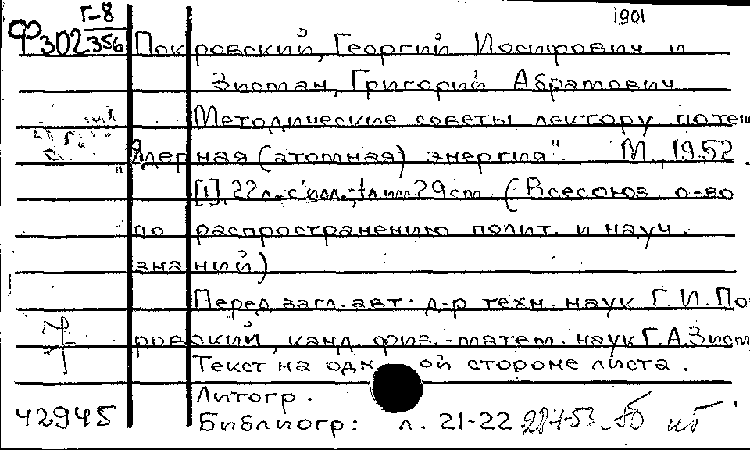 Г-8 1901
Ф302 356 Покровский, Георгий Иосифович и
Зисман, Григорий Абрамович
Методические советы лектору по теме
"Ядерная (атомная) энергия". М., 1952.
[1], 22 л. с илл., 29 см (Всесоюз. о-во
по распространению полит. и науч.
знаний)
Перед загл. авт.: д-р техн. наук Г.И. По
ровский, канд. физ.-матем. наук Г.А. Зисм
Текст на одной стороне листа.
Литогр.
42945 Библиогр: л. 21-22